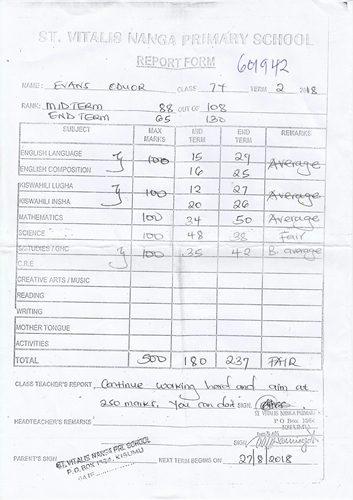 ST. VITALIS NANGA PRIMARY SCHOOL
REPORT FORM
601942
NAME: EVANS ODUOR CLASS 7Y TERM 2 2018
RANK: MIDTERM 88 OUT OF 108
END TERM 65 130
SUBJECT MAX MARKS MID TERM END TERM REMARKS
ENGLISH LANGUAGE 100 15 29 Average
ENGLISH COMPOSITION 16 25
KISWAHILI LUGHA 100 12 27 Average
KISWAHILI INSHA 20 26
MATHEMATICS 100 34 50 Average
SCIENCE 100 48 38 Fair
S/STUDIES / GHC 100 35 42 B. average
C.R.E
CREATIVE ARTS / MUSIC
READING
WRITING
MOTHER TONGUE
ACTIVITIES
TOTAL 500 180 237 FAIR
CLASS TEACHER'S REPORT Continue working hard and aim at
250 marks. You can do it SIGN.
ST VITALIS NANGA PRI
P O Box
KISUMU
HEADTEACHER'S REMARKS
SIGN
ST. VITALIS NANGA PRI. SCHOOL
P.O. BOX KISUMU
DATE
PARENT'S SIGN NEXT TERM BEGINS ON 27/8/2018